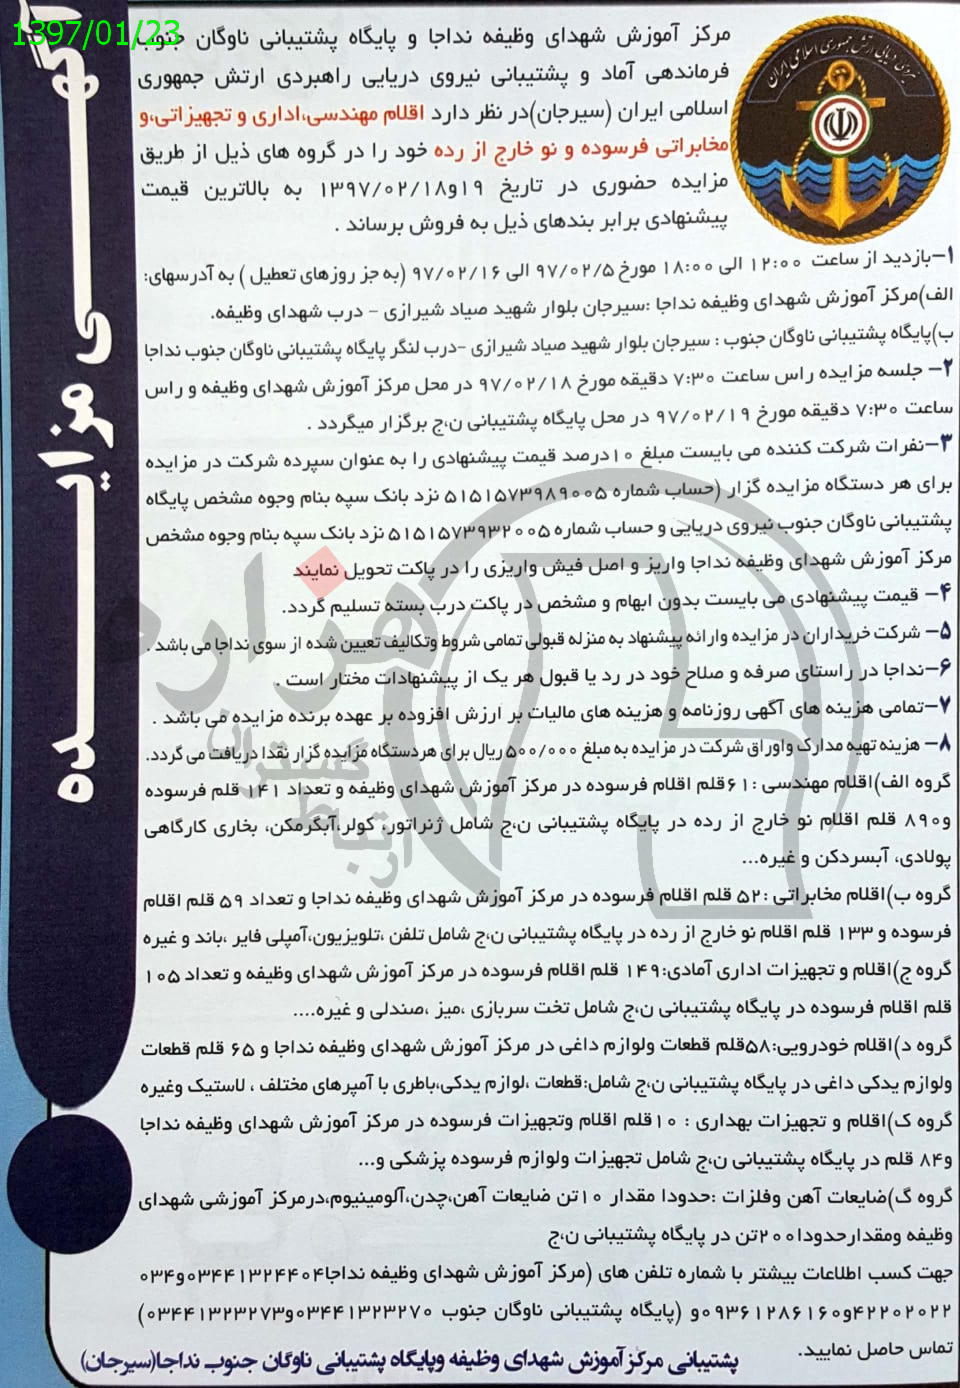 1397/01/23
آگهی مزایده
نیروی دریایی ارتش جمهوری اسلامی ایران
مرکز آموزش شهدای وظیفه نداجا و پایگاه پشتیبانی ناوگان جنوب
فرماندهی آماد و پشتیبانی نیروی دریایی راهبردی ارتش جمهوری
اسلامی ایران (سیرجان)در نظر دارد اقلام مهندسی،اداری و تجهیزاتی،و
مخابراتی فرسوده و نو خارج از رده خود را در گروه های ذیل از طریق
مزایده حضوری در تاریخ ۱۹و۱۳۹۷/۰۲/۱۸ به بالاترین قیمت
پیشنهادی برابر بندهای ذیل به فروش برساند .
۱-بازدید از ساعت ۱۲:۰۰ الی ۱۸:۰۰ مورخ ۹۷/۰۲/۵ الی ۹۷/۰۲/۱۶ (به جز روزهای تعطیل ) به آدرسهای:
الف)مرکز آموزش شهدای وظیفه نداجا :سیرجان بلوار شهید صیاد شیرازی - درب شهدای وظیفه.
ب)پایگاه پشتیبانی ناوگان جنوب : سیرجان بلوار شهید صیاد شیرازی -درب لنگر پایگاه پشتیبانی ناوگان جنوب نداجا
۲- جلسه مزایده راس ساعت ۷:۳۰ دقیقه مورخ ۹۷/۰۲/۱۸ در محل مرکز آموزش شهدای وظیفه و راس
ساعت ۷:۳۰ دقیقه مورخ ۹۷/۰۲/۱۹ در محل پایگاه پشتیبانی ن،ج برگزار میگردد .
۳-نفرات شرکت کننده می بایست مبلغ ۱۰درصد قیمت پیشنهادی را به عنوان سپرده شرکت در مزایده
برای هر دستگاه مزایده گزار (حساب شماره ۵۱۵۱۵۷۳۹۸۹۰۰۵ نزد بانک سپه بنام وجوه مشخص پایگاه
پشتیبانی ناوگان جنوب نیروی دریایی و حساب شماره ۵۱۵۱۵۷۳۹۳۲۰۰۵ نزد بانک سپه بنام وجوه مشخص
مرکز آموزش شهدای وظیفه نداجا واریز و اصل فیش واریزی را در پاکت تحویل نمایند
۴- قیمت پیشنهادی می بایست بدون ابهام و مشخص در پاکت درب بسته تسلیم گردد.
۵- شرکت خریداران در مزایده وارائه پیشنهاد به منزله قبولی تمامی شروط وتکالیف تعیین شده از سوی نداجا می باشد .
۶-نداجا در راستای صرفه و صلاح خود در رد یا قبول هر یک از پیشنهادات مختار است .
۷-تمامی هزینه های آگهی روزنامه و هزینه های مالیات بر ارزش افزوده بر عهده برنده مزایده می باشد .
۸- هزینه تهیه مدارک واوراق شرکت در مزایده به مبلغ ۵۰۰/۰۰۰ ریال برای هردستگاه مزایده گزار نقدا دریافت می گردد.
گروه الف)اقلام مهندسی :۶۱قلم اقلام فرسوده در مرکز آموزش شهدای وظیفه و تعداد ۱۴۱ قلم فرسوده
و۸۹۰ قلم اقلام نو خارج از رده در پایگاه پشتیبانی ن،ج شامل ژنراتور، کولر،آبگرمکن، بخاری کارگاهی
پولادی، آبسردکن و غیره...
گروه ب)اقلام مخابراتی :۵۲ قلم اقلام فرسوده در مرکز آموزش شهدای وظیفه نداجا و تعداد ۵۹ قلم اقلام
فرسوده و ۱۳۳ قلم اقلام نو خارج از رده در پایگاه پشتیبانی ن،ج شامل تلفن ،تلویزیون،آمپلی فایر ،باند و غیره
گروه ج)اقلام و تجهیزات اداری آمادی:۱۴۹ قلم اقلام فرسوده در مرکز آموزش شهدای وظیفه و تعداد ۱۰۵
قلم اقلام فرسوده در پایگاه پشتیبانی ن،ج شامل تخت سربازی ،میز ،صندلی و غیره....
گروه د)اقلام خودرویی:۵۸قلم قطعات ولوازم داغی در مرکز آموزش شهدای وظیفه نداجا و ۶۵ قلم قطعات
ولوازم یدکی داغی در پایگاه پشتیبانی ن،ج شامل:قطعات ،لوازم یدکی،باطری با آمپرهای مختلف ، لاستیک وغیره
گروه ک)اقلام و تجهیزات بهداری : ۱۰قلم اقلام وتجهیزات فرسوده در مرکز آموزش شهدای وظیفه نداجا
و۸۴ قلم در پایگاه پشتیبانی ن،ج شامل تجهیزات ولوازم فرسوده پزشکی و...
گروه گ)ضایعات آهن وفلزات :حدودا مقدار ۱۰تن ضایعات آهن،چدن،آلومینیوم،درمرکز آموزشی شهدای
وظیفه ومقدارحدودا۲۰۰تن در پایگاه پشتیبانی ن،ج
جهت کسب اطلاعات بیشتر با شماره تلفن های (مرکز آموزش شهدای وظیفه نداجا۰۳۴۴۱۳۲۴۴۰۴و۰۳۴
۴۲۲۰۲۰۲۲و۰۹۳۶۱۲۸۶۱۶۰و (پایگاه پشتیبانی ناوگان جنوب ۰۳۴۴۱۳۲۳۲۷۰و۰۳۴۴۱۳۲۳۲۷۳)
تماس حاصل نمایید.
پشتیبانی مرکز آموزش شهدای وظیفه وپایگاه پشتیبانی ناوگان جنوب نداجا(سیرجان)
هزاره